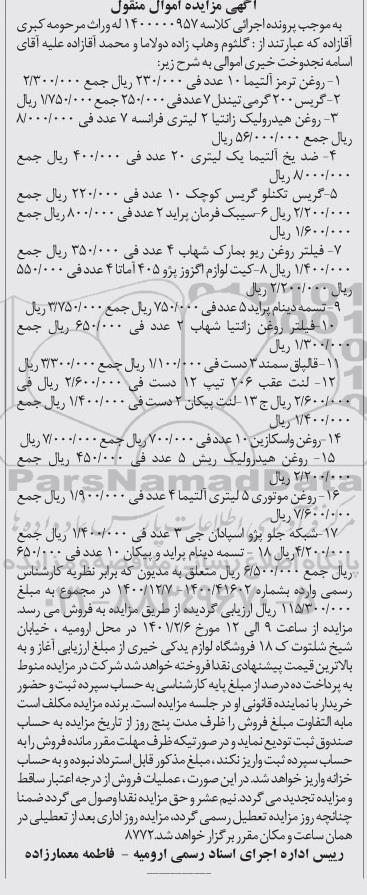 آگهی مزایده اموال منقول
به موجب پرونده اجرائی کلاسه ۱۴۰۰۰۰۰۹۵۷ له وراث مرحومه کبری
آقازاده که عبارتند از : گلثوم وهاب زاده دولاما و محمد آقازاده علیه آقای
اسامه نجدوخت خیری اموالی به شرح زیر:
۱- روغن ترمز آلتیما ۱۰ عدد فی ۲۳۰/۰۰۰ ریال جمع ۲/۳۰۰/۰۰۰
۲-گریس ۲۰۰ گرمی تیندل ۷ عدد فی ۲۵۰/۰۰۰ جمع ۱/۷۵۰/۰۰۰ ریال
۳- روغن هیدرولیک زانتیا ۲ لیتری فرانسه ۷ عدد فی ۸/۰۰۰/۰۰۰
ریال جمع ۵۶/۰۰۰/۰۰۰ ریال
۴- ضد یخ آلتیما یک لیتری ۲۰ عدد فی ۴۰۰/۰۰۰ ریال جمع
۸/۰۰۰/۰۰۰ ریال
۵-گریس تکنلو گریس کوچک ۱۰ عدد فی ۲۲۰/۰۰۰ ریال جمع
۲/۲۰۰/۰۰۰ ریال ۶-سیبک فرمان پراید ۲ عدد فی ۸۰۰/۰۰۰ ریال جمع
۱/۶۰۰/۰۰۰ ریال
۷- فیلتر روغن ریو بمارک شهاب ۴ عدد فی ۳۵۰/۰۰۰ ریال جمع
۱/۴۰۰/۰۰۰ ریال ۸-کیت لوازم اگزوز پژو ۴۰۵ آماتا ۴ عدد فی ۵۵۰/۰۰۰
ریال ۲/۲۰۰/۰۰۰ ریال
۹- تسمه دینام پراید ۵ عدد فی ۷۵۰/۰۰۰ ریال جمع ۳/۷۵۰/۰۰۰ ریال
۱۰-فیلتر روغن زانتیا شهاب ۲ عدد فی ۶۵۰/۰۰۰ ریال جمع
۱/۳۰۰/۰۰۰ ریال
۱۱-قالپاق سمند ۳ دست فی ۱/۱۰۰/۰۰۰ ریال جمع ۳/۳۰۰/۰۰۰ ریال
۱۲- لنت عقب ۲۰۶ تیپ ۱۲ دست فی ۲/۶۰۰/۰۰۰ ریال فی
۲/۶۰۰/۰۰۰ ریال ج ۱۳-لنت پیکان ۲ دست فی ۱/۴۰۰/۰۰۰ ریال جمع
۱/۴۰۰/۰۰۰ ریال
۱۴-روغن واسکازین ۱۰ عدد فی ۷۰۰/۰۰۰ ریال جمع ۷/۰۰۰/۰۰۰ ریال
۱۵- روغن هیدرولیک ریش ۵ عدد فی ۴۵۰/۰۰۰ ریال جمع
۲/۲۰۰/۰۰۰ ریال
۱۶-روغن موتوری ۵ لیتری آلتیما ۴ عدد فی ۱/۹۰۰/۰۰۰ ریال جمع
۷/۶۰۰/۰۰۰ ریال
۱۷-شبکه جلو پژو اسپادان جی ۳ عدد فی ۱/۴۰۰/۰۰۰ ریال جمع
۴/۲۰۰/۰۰۰ ریال ۱۸ - تسمه دینام پراید و پیکان ۱۰ عدد فی ۶۵۰/۰۰۰
ریال جمع ۶/۵۰۰/۰۰۰ ریال متعلق به مدیون که برابر نظریه کارشناس
رسمی وارده بشماره ۱۴۰۰/۴۱۶۰۲-۱۴۰۰/۱۲/۷ در مجموع به مبلغ
۱۱۵/۳۰۰/۰۰۰ ریال ارزیابی گردیده از طریق مزایده به فروش می رسد.
مزایده از ساعت ۹ الی ۱۲ مورخ ۱۴۰۱/۲/۶ در محل ارومیه ، خیابان
شیخ شلتوت ک ۱۸ فروشگاه لوازم یدکی خیری از مبلغ ارزیابی آغاز و به
بالاترین قیمت پیشنهادی نقدا فروخته خواهد شد شرکت در مزایده منوط
به پرداخت ده درصد از مبلغ پایه کارشناسی به حساب سپرده ثبت و حضور
خریدار با نماینده قانونی او در جلسه مزایده است. برنده مزایده مکلف است
مابه التفاوت مبلغ فروش را ظرف مدت پنج روز از تاریخ مزایده به حساب
صندوق ثبت تودیع نماید و در صورتیکه ظرف مهلت مقرر مانده فروش را به
حساب سپرده ثبت واریز نکند ، مبلغ مذکور قابل استرداد نبوده و به حساب
خزانه واریز خواهد شد. در این صورت ، عملیات فروش از درجه اعتبار ساقط
و مزایده تجدید می گردد. نیم عشر و حق مزایده نقدا وصول می گردد ضمنا
چنانچه روز مزایده تعطیل رسمی گردد، مزایده روز اداری بعد از تعطیلی در
همان ساعت و مکان مقرر برگزار خواهد شد. ۸۷۷۲
رییس اداره اجرای اسناد رسمی ارومیه - فاطمه معمارزاده
ParsNamadData